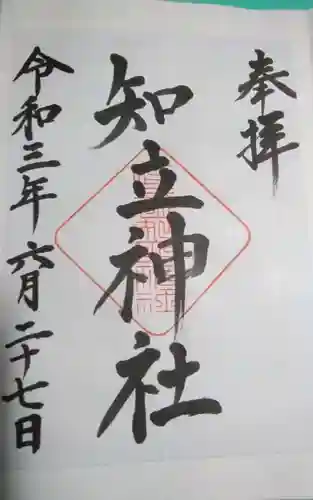 奉拝
知立神社
令和三年六月二十七日